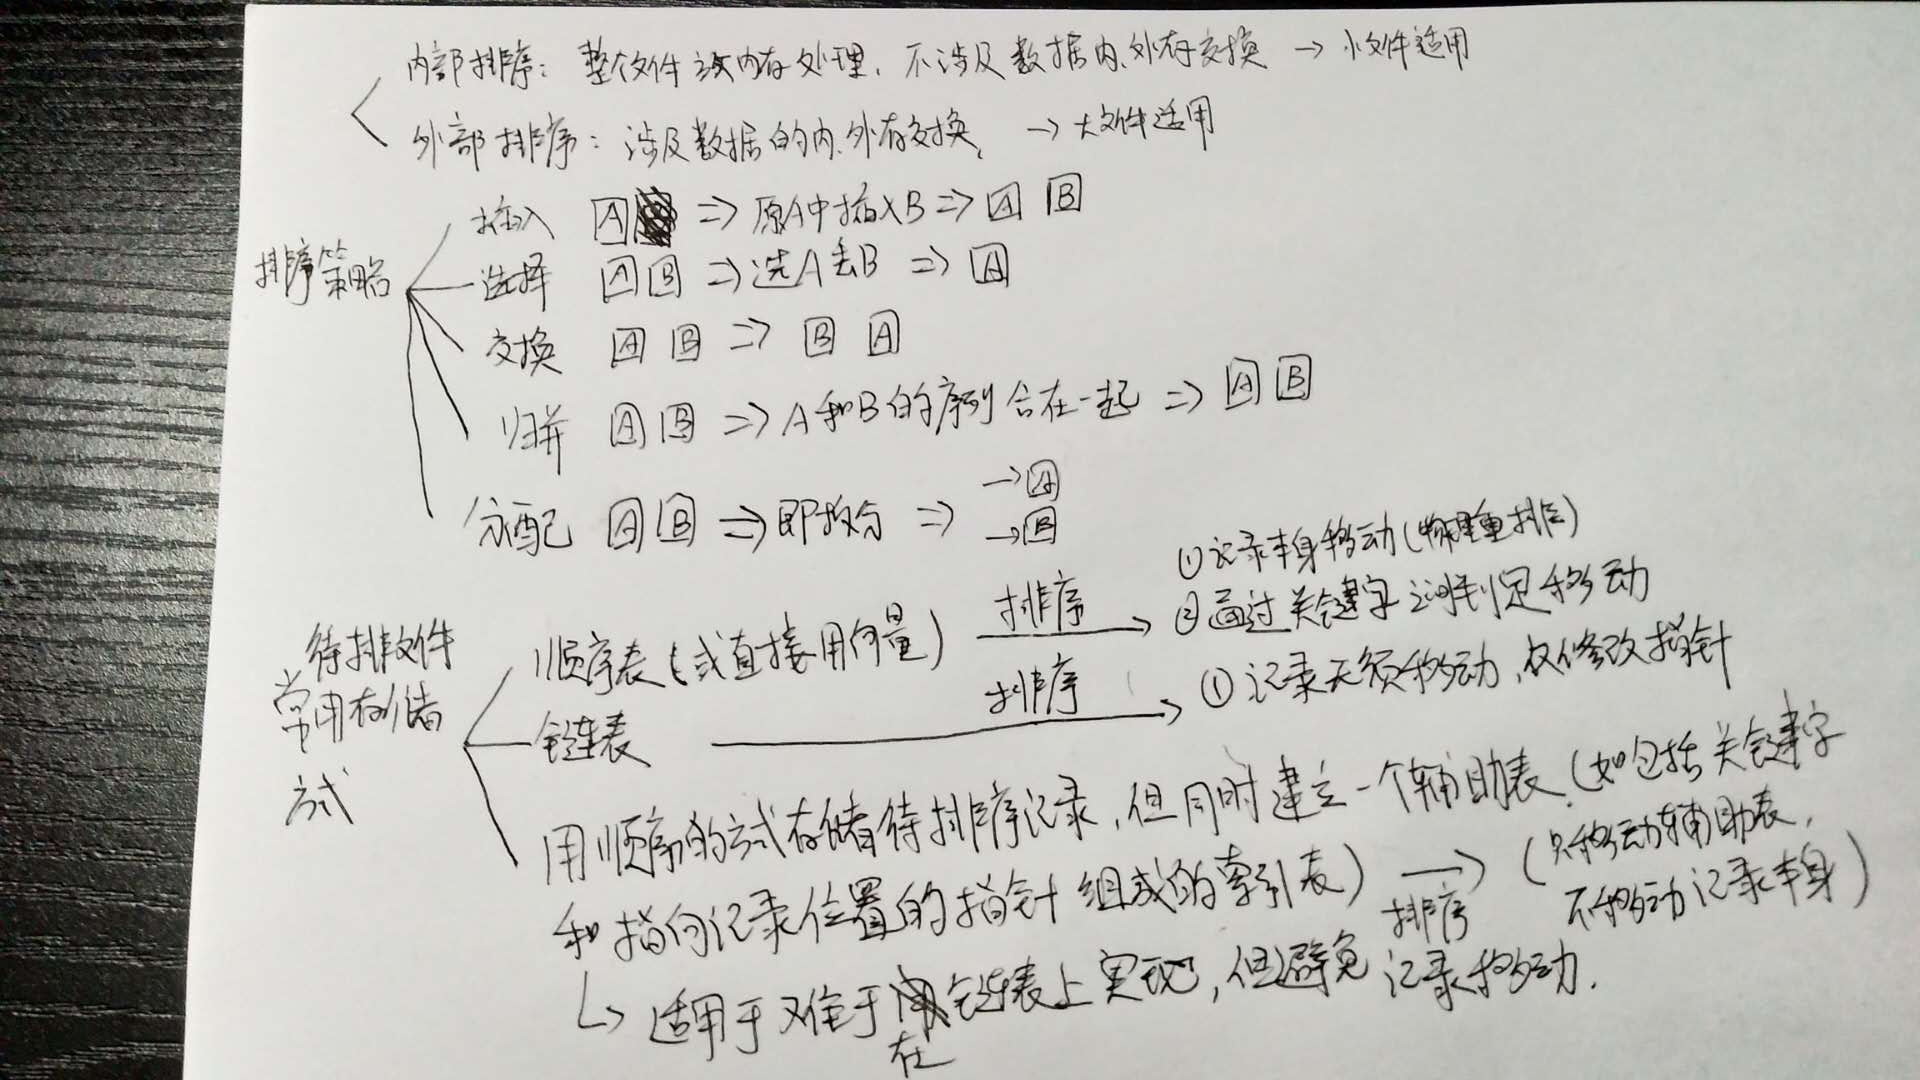 内部排序：整个文件放内存处理，不涉及数据内、外存交换 → 小文件适用
外部排序：涉及数据的内、外存交换， → 大文件适用
排序策略
插入 A ⇒ 原A中插入B ⇒ A B
选择 A B ⇒ 选A丢B ⇒ A
交换 A B ⇒ B A
归并 A B ⇒ A和B的序列合在一起 ⇒ A B
分配 A B ⇒ 即拆分 ⇒ → A
→ B
待排文件
常用存储
方式
顺序表（或直接用向量） 排序 → ①记录本身移动（物理重排）
②通过关键字 判定移动
链表 排序 → ①记录无须移动，仅修改指针
用顺序的方式存储待排序记录，但同时建立一个辅助表（如包括关键字
和指向记录位置的指针组成的索引表） → 排序 （只移动辅助表，
不移动记录本身）
↳ 适用于难于在链表上实现，但避免记录移动.